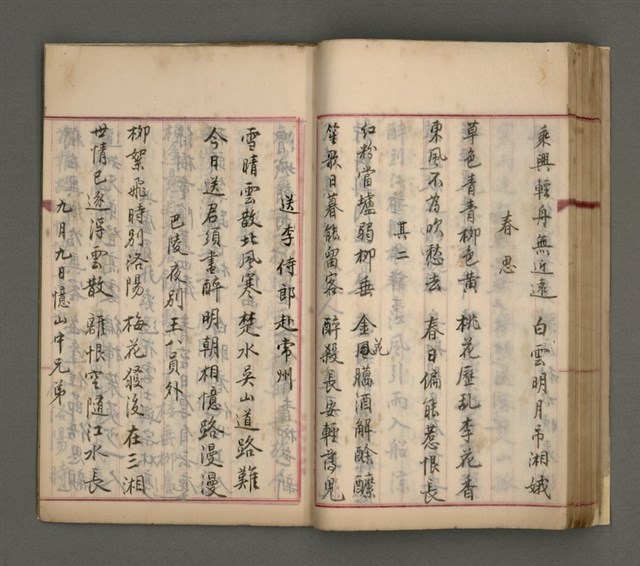 乘興輕舟無近遠 白雲明月吊湘娥
春思
草色青青柳色黃 桃花歷乱李花香
東風不為吹愁去 春日偏能惹恨長
其二
紅粉當壚弱柳垂 金花臈酒解酴醾
笙歌日暮能留客 醉殺長安輕薄兒
送李侍郎赴常州
雪晴雲散北風寒 楚水吳山道路難
今日送君須盡醉 明朝相憶路漫漫
巴陵夜別王八員外
柳絮飛時別洛陽 梅花發後在三湘
世情已逐浮雲散 離恨空隨江水長
九月九日憶山中兄弟